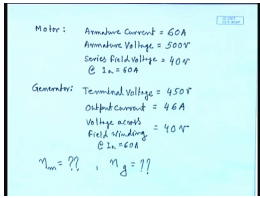 Motor: Armature Current = 60A
Armature Voltage = 500V
Series Field Voltage = 40V
@ Ia = 60A
Generator: Terminal Voltage = 450V
Output Current = 46A
Voltage across
Field Winding = 40V
@ Ia = 60A
ηm = ?? , ηg = ??